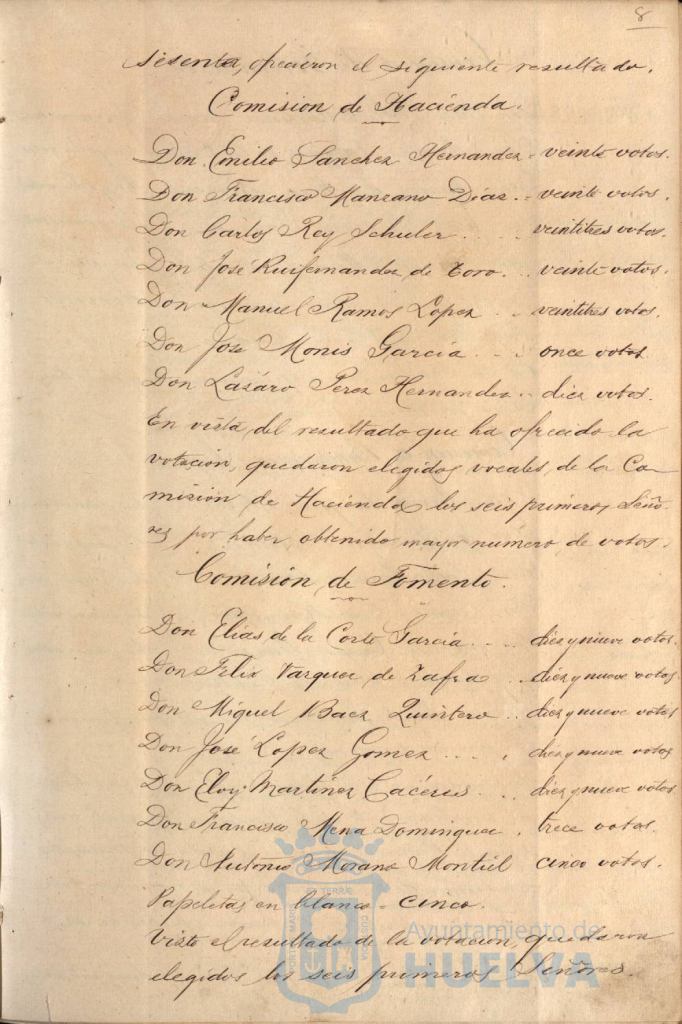 8
sesenta, ofrecieron el siguiente resultado.
Comision de Hacienda.
Don Emilio Sanchez Hernandez - veinte votos.
Don Francisco Manzano Diaz .. veinte votos.
Don Carlos Rey Schuler .... veintitres votos.
Don José Ruifernandez de Toro ... veinte votos.
Don Manuel Ramos Lopez ... veintitres votos.
Don Jose Monis Garcia ... once votos
Don Lazaro Perez Hernandez .. diez votos.
En vista del resultado que ha ofrecido la
votacion, quedaron elegidos vocales de la Co-
mision de Hacienda los seis primeros Seño-
res por haber obtenido mayor numero de votos.
Comisión de Fomento.
Don Elias de la Corte Garcia .... diez y nueve votos.
Don Felix Vazquez de Zafra .. diez y nueve votos.
Don Miguel Baez Quintero .. diez y nueve votos
Don José Lopez Gomez .... diez y nueve votos
Don Eloy Martinez Caceres ... diez y nueve votos
Don Francisco Mena Dominguez . trece votos.
Don Antonio Morano Montiel cinco votos.
Papeletas en blanco - cinco.
Visto el resultado de la votacion, quedaron
elegidos los seis primeros Señores.
Ayuntamiento de
HUELVA